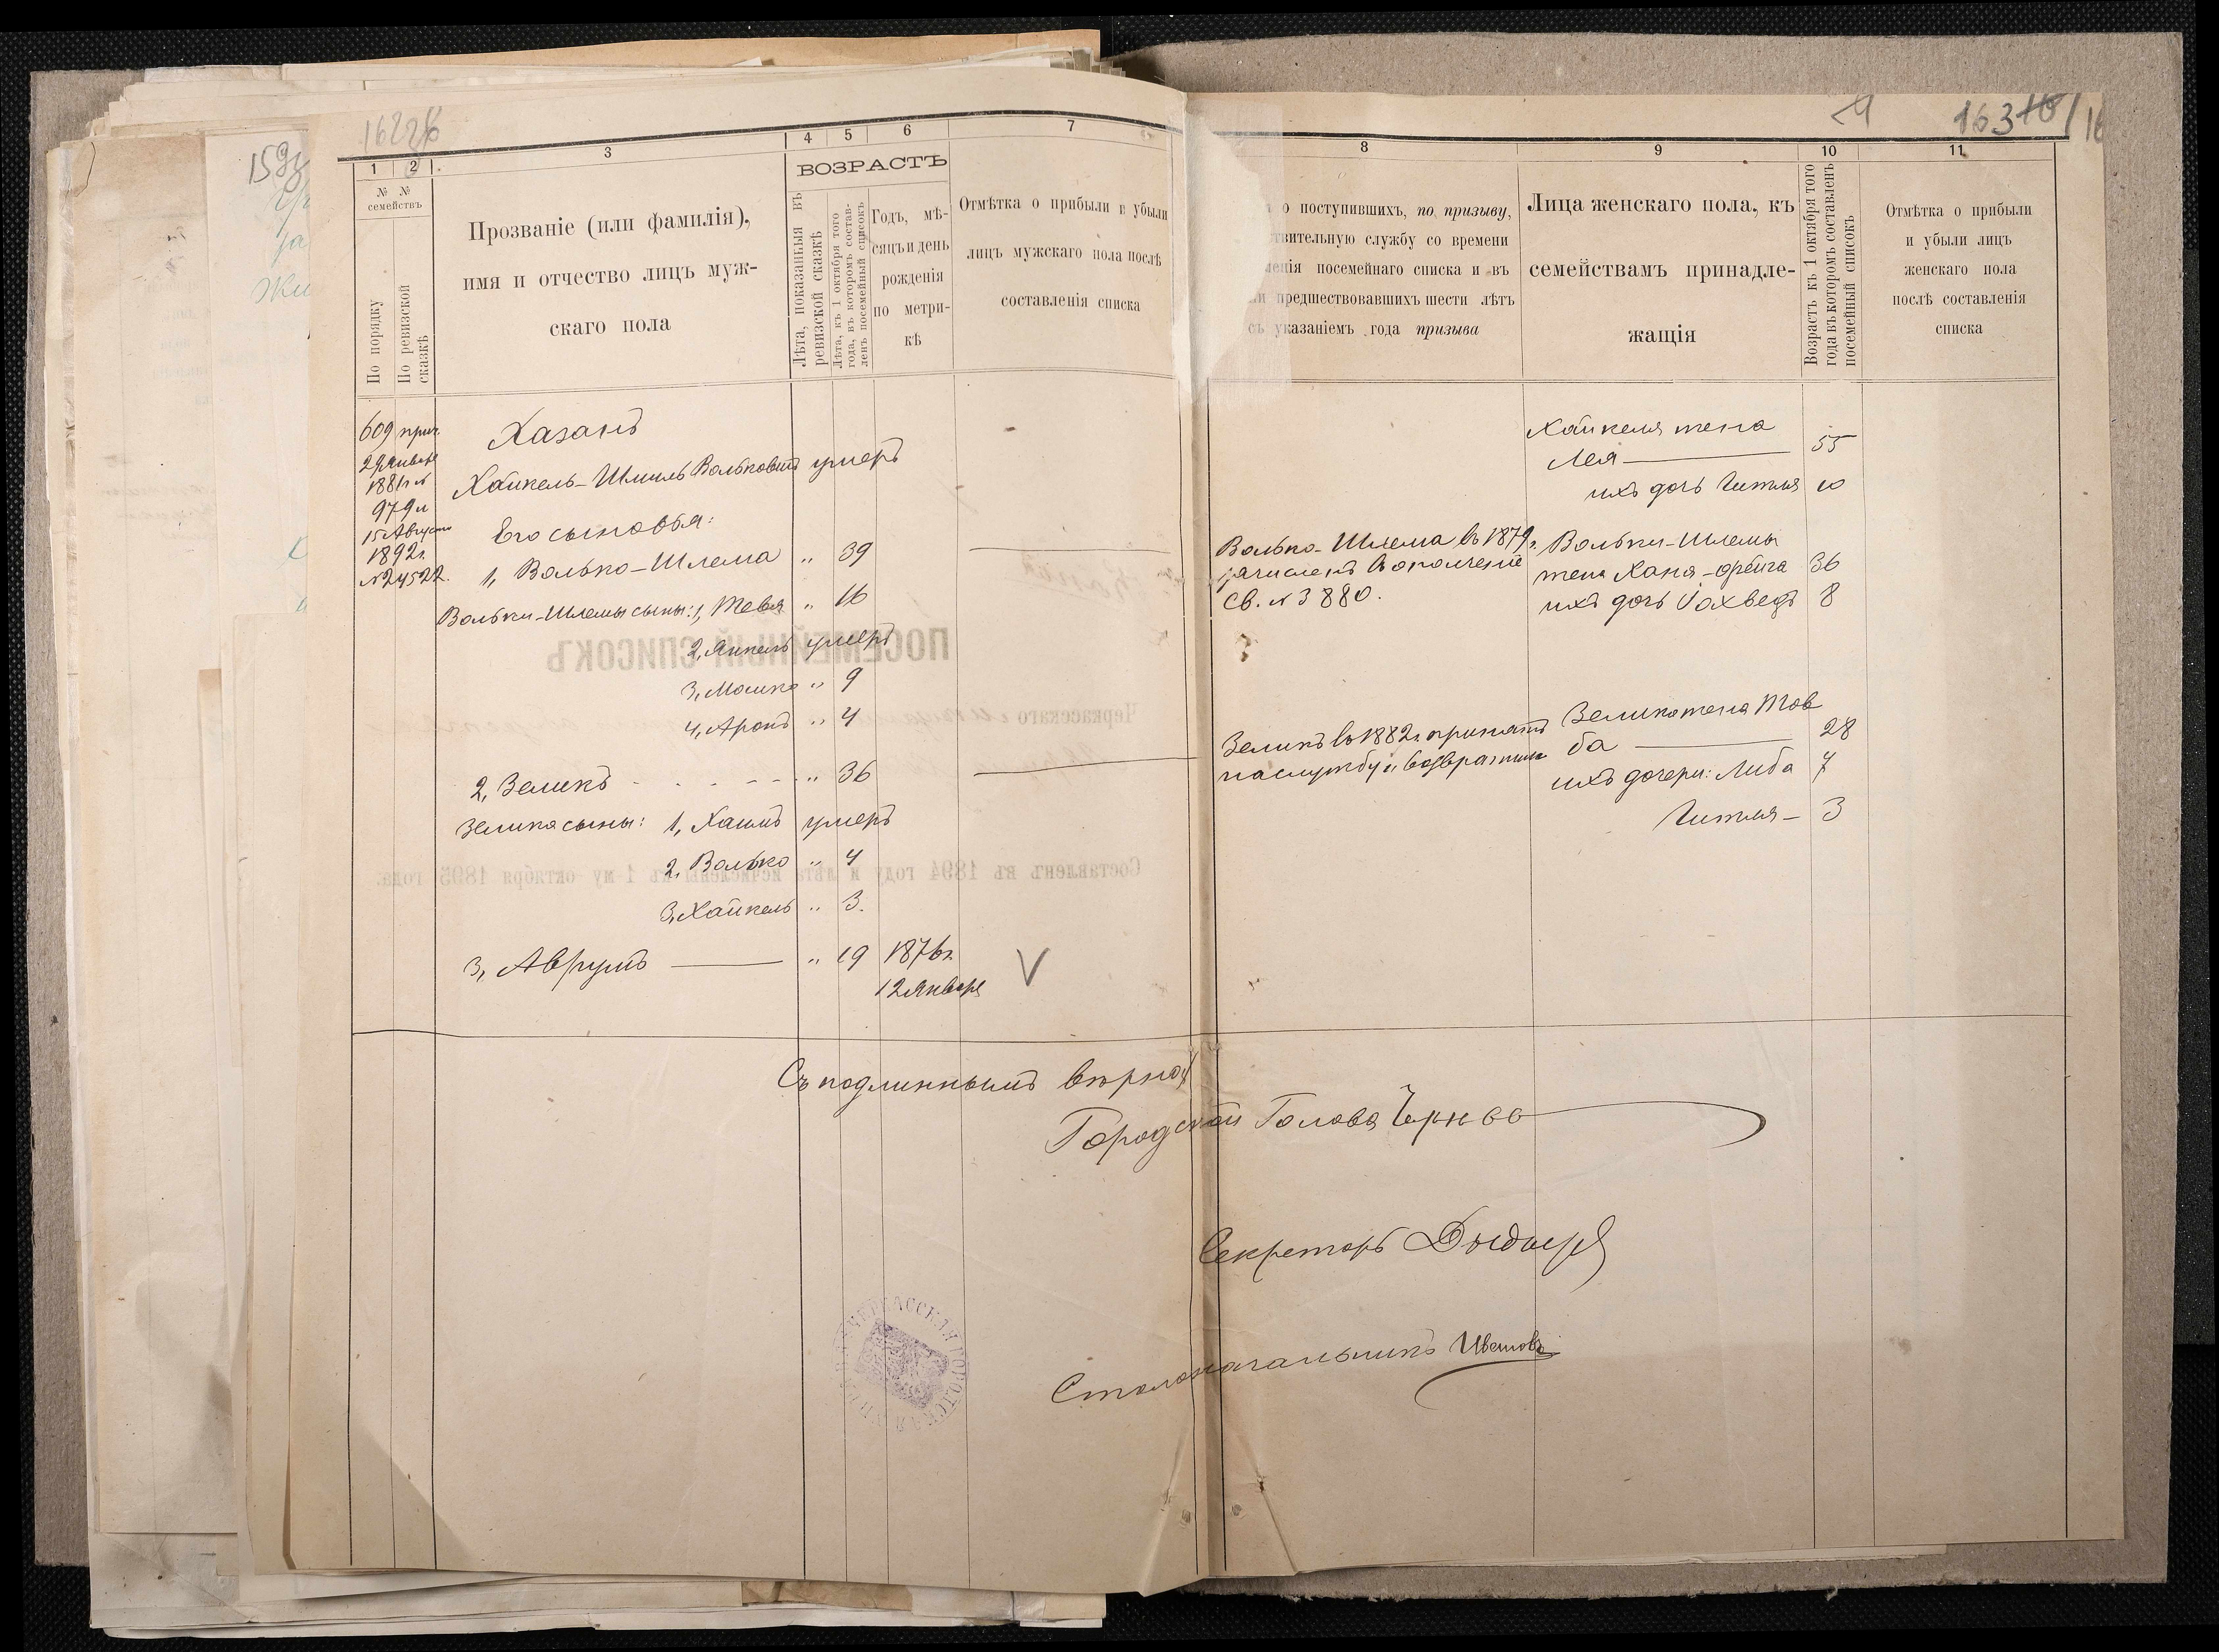 1
2
3
4
5
6
7
№ №
семействъ
По порядку
По ревизской сказкѣ
Прозваніе (или фамилія),
имя и отчество лицъ муж-
скаго пола
ВОЗРАСТЪ
Лѣта, показанныя въ
ревизской сказкѣ
Лѣта, къ 1 октября того
года, въ которомъ состав-
ленъ посемейный списокъ
Годъ, мѣ-
сяцъ и день
рожденія
по метри-
кѣ
Отмѣтка о прибыли и убыли
лицъ мужскаго пола послѣ
составленія списка
609 прич.
29 Января
1881 г №
979 и
15 Августа
1892 г.
№ 24522.
Хазанъ
Хайкель-Шмиль Вольковичъ умеръ
Его сыновья:
1, Волько-Шлема „ 39
Вольки-Шлемы сыны: 1, Тевя „ 16
2, Янкель умеръ
3, Мошко „ 9
4, Аронъ „ 4
2, Зеликъ „ 36
Зелика сыны: 1, Хаимъ умеръ
2, Волько „ 4
3, Хайкель „ 3.
3, Аврумъ „ 19 1876 г.
12 Января V
8
9
10
11
о поступившихъ, по призыву,
твительную службу со времени
енія посемейнаго списка и въ
и предшествовавшихъ шести лѣтъ
съ указаніемъ года призыва
Лица женскаго пола, къ
семействамъ принадле-
жащія
Возрастъ къ 1 октября того
года въ которомъ составленъ
посемейный списокъ
Отмѣтка о прибыли
и убыли лицъ
женскаго пола
послѣ составленія
списка
Хайкеля жена
Лея 55
ихъ дочь Гитля 10
Волько-Шлема въ 1879 г.
зачисленъ въ ополченіе
Св. № 3880.
Вольки-Шлемы
жена Хана-Фейга 36
ихъ дочь Іохведъ 8
Зеликъ въ 1882 г. принятъ
на службу и возвратился
Зелика жена Тов
ба 28
ихъ дочери: Либа 7
Гитля 3
Съ подлиннымъ вѣрно:
Городской Голова
Секретарь
Столоначальникъ
ЧЕРКАССКАЯ ГОРОДСКАЯ